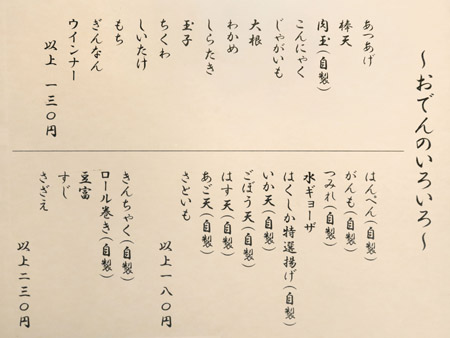 ～おでんのいろいろ～
あつあげ
棒天
肉玉(自製)
こんにゃく
じゃがいも
大根
わかめ
しらたき
玉子
ちくわ
しいたけ
もち
ぎんなん
ウインナー
以上 一三〇円
はんぺん(自製)
がんも(自製)
つみれ(自製)
水ギョーザ
はくしか特選揚げ(自製)
いか天(自製)
ごぼう天(自製)
はす天(自製)
あご天(自製)
さといも
以上一八〇円
きんちゃく(自製)
ロール巻き(自製)
豆富
すじ
さざえ
以上二三〇円